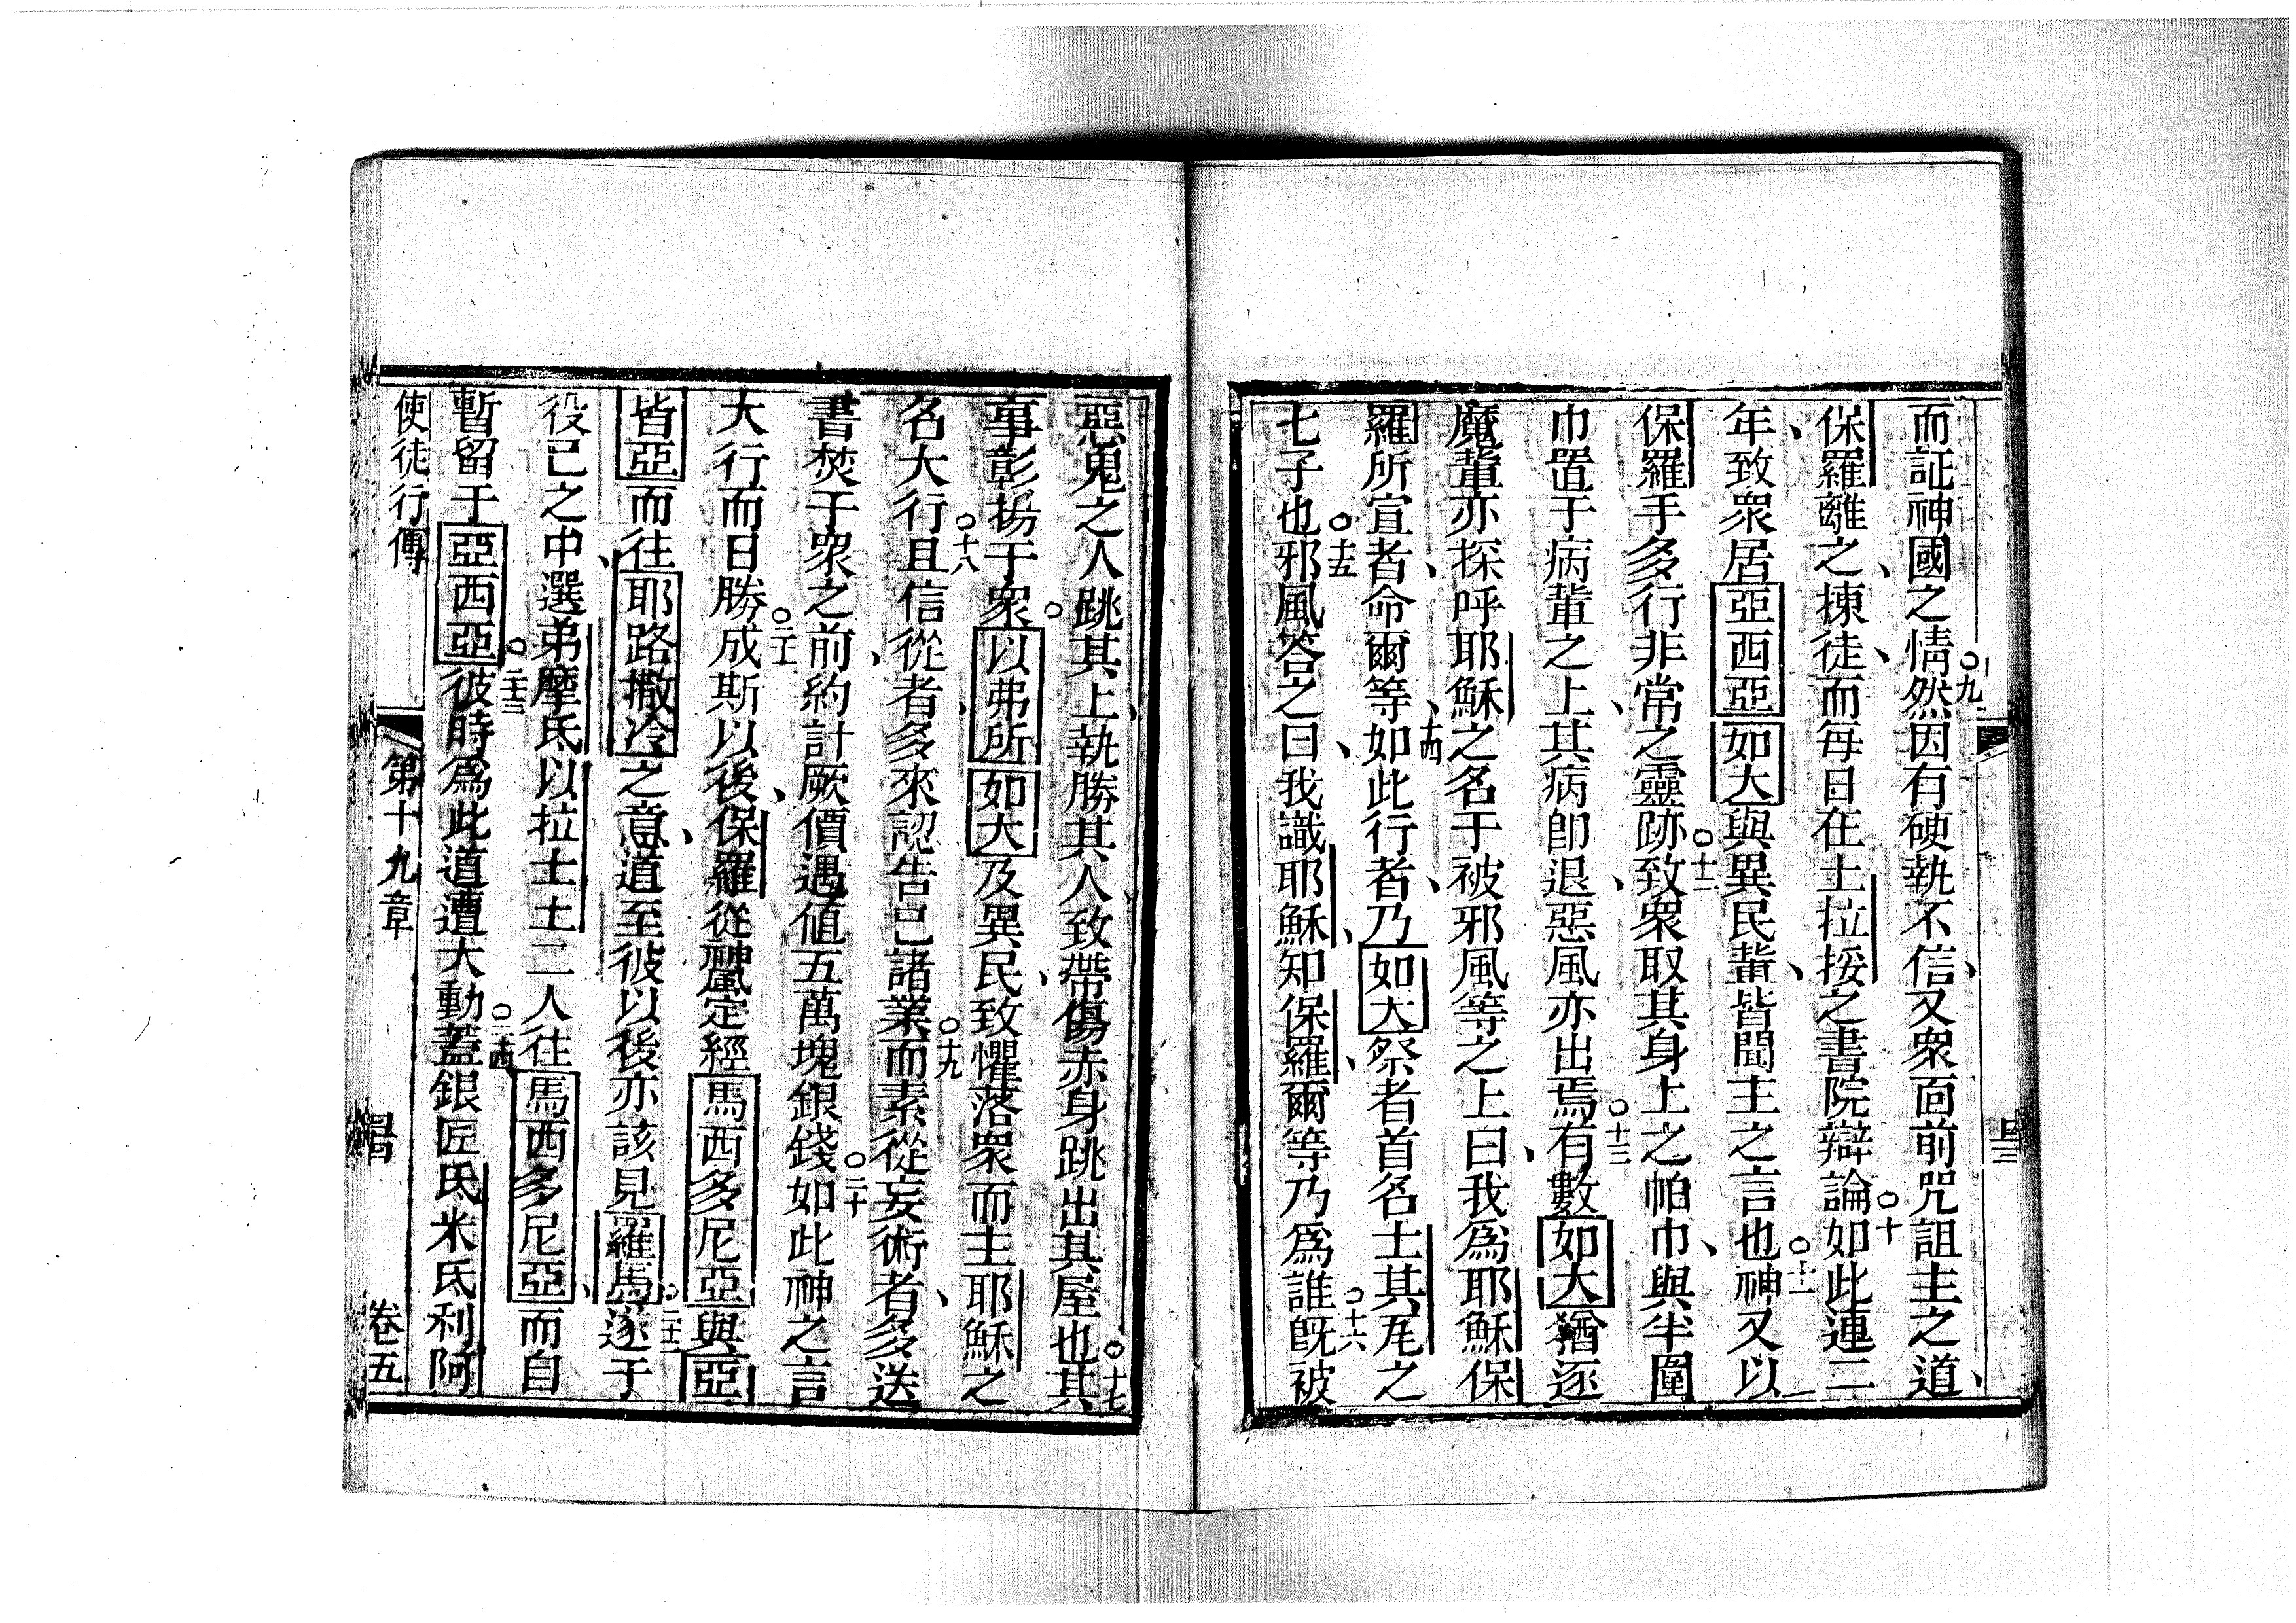 而証神國之情○九然因有硬執不信、又衆面前咒詛主之道、
保羅離之、揀徒、而每日在土拉挼之書院辯論○十如此連二
年、致衆居亞西亞如大與異民輩、皆聞主之言也○十一神又以
保羅手多行非常之靈跡○十二致衆取其身上之帕巾、與半圍
巾置于病輩之上、其病卽退、惡風亦出焉○十三有數如大猶逐
魔輩亦探呼耶穌之名于被邪風等之上曰、我爲耶穌保
羅所宣者、命爾等、十四如此行者、乃如大祭者首名士其瓦之
七子也○十五邪風答之曰、我識耶穌、知保羅、爾等乃爲誰○十六旣被
惡鬼之人跳其上、執勝其人、致帶傷赤身跳出其屋也○十七其
事彰揚于衆○以弗所如大及異民、致懼落衆而主耶穌之
名大行○十八且信從者、多來認告己諸業○十九而素從妄術者、多送
書焚于衆之前、約計厥價遇值五萬塊銀錢○二十如此神之言
大行而日勝○二十一成斯以後、保羅從神風定經馬西多尼亞與亞
皆亞而往、耶路撒冷之意、道至彼以後亦該見羅馬○二十二遂于
役己之中選弟摩氐以拉土土二人往馬西多尼亞、而自
暫留于亞西亞○二十三彼時爲此道遭大動○二十四蓋銀匠氐米氐利阿
使徒行傳
第十九章
卷五